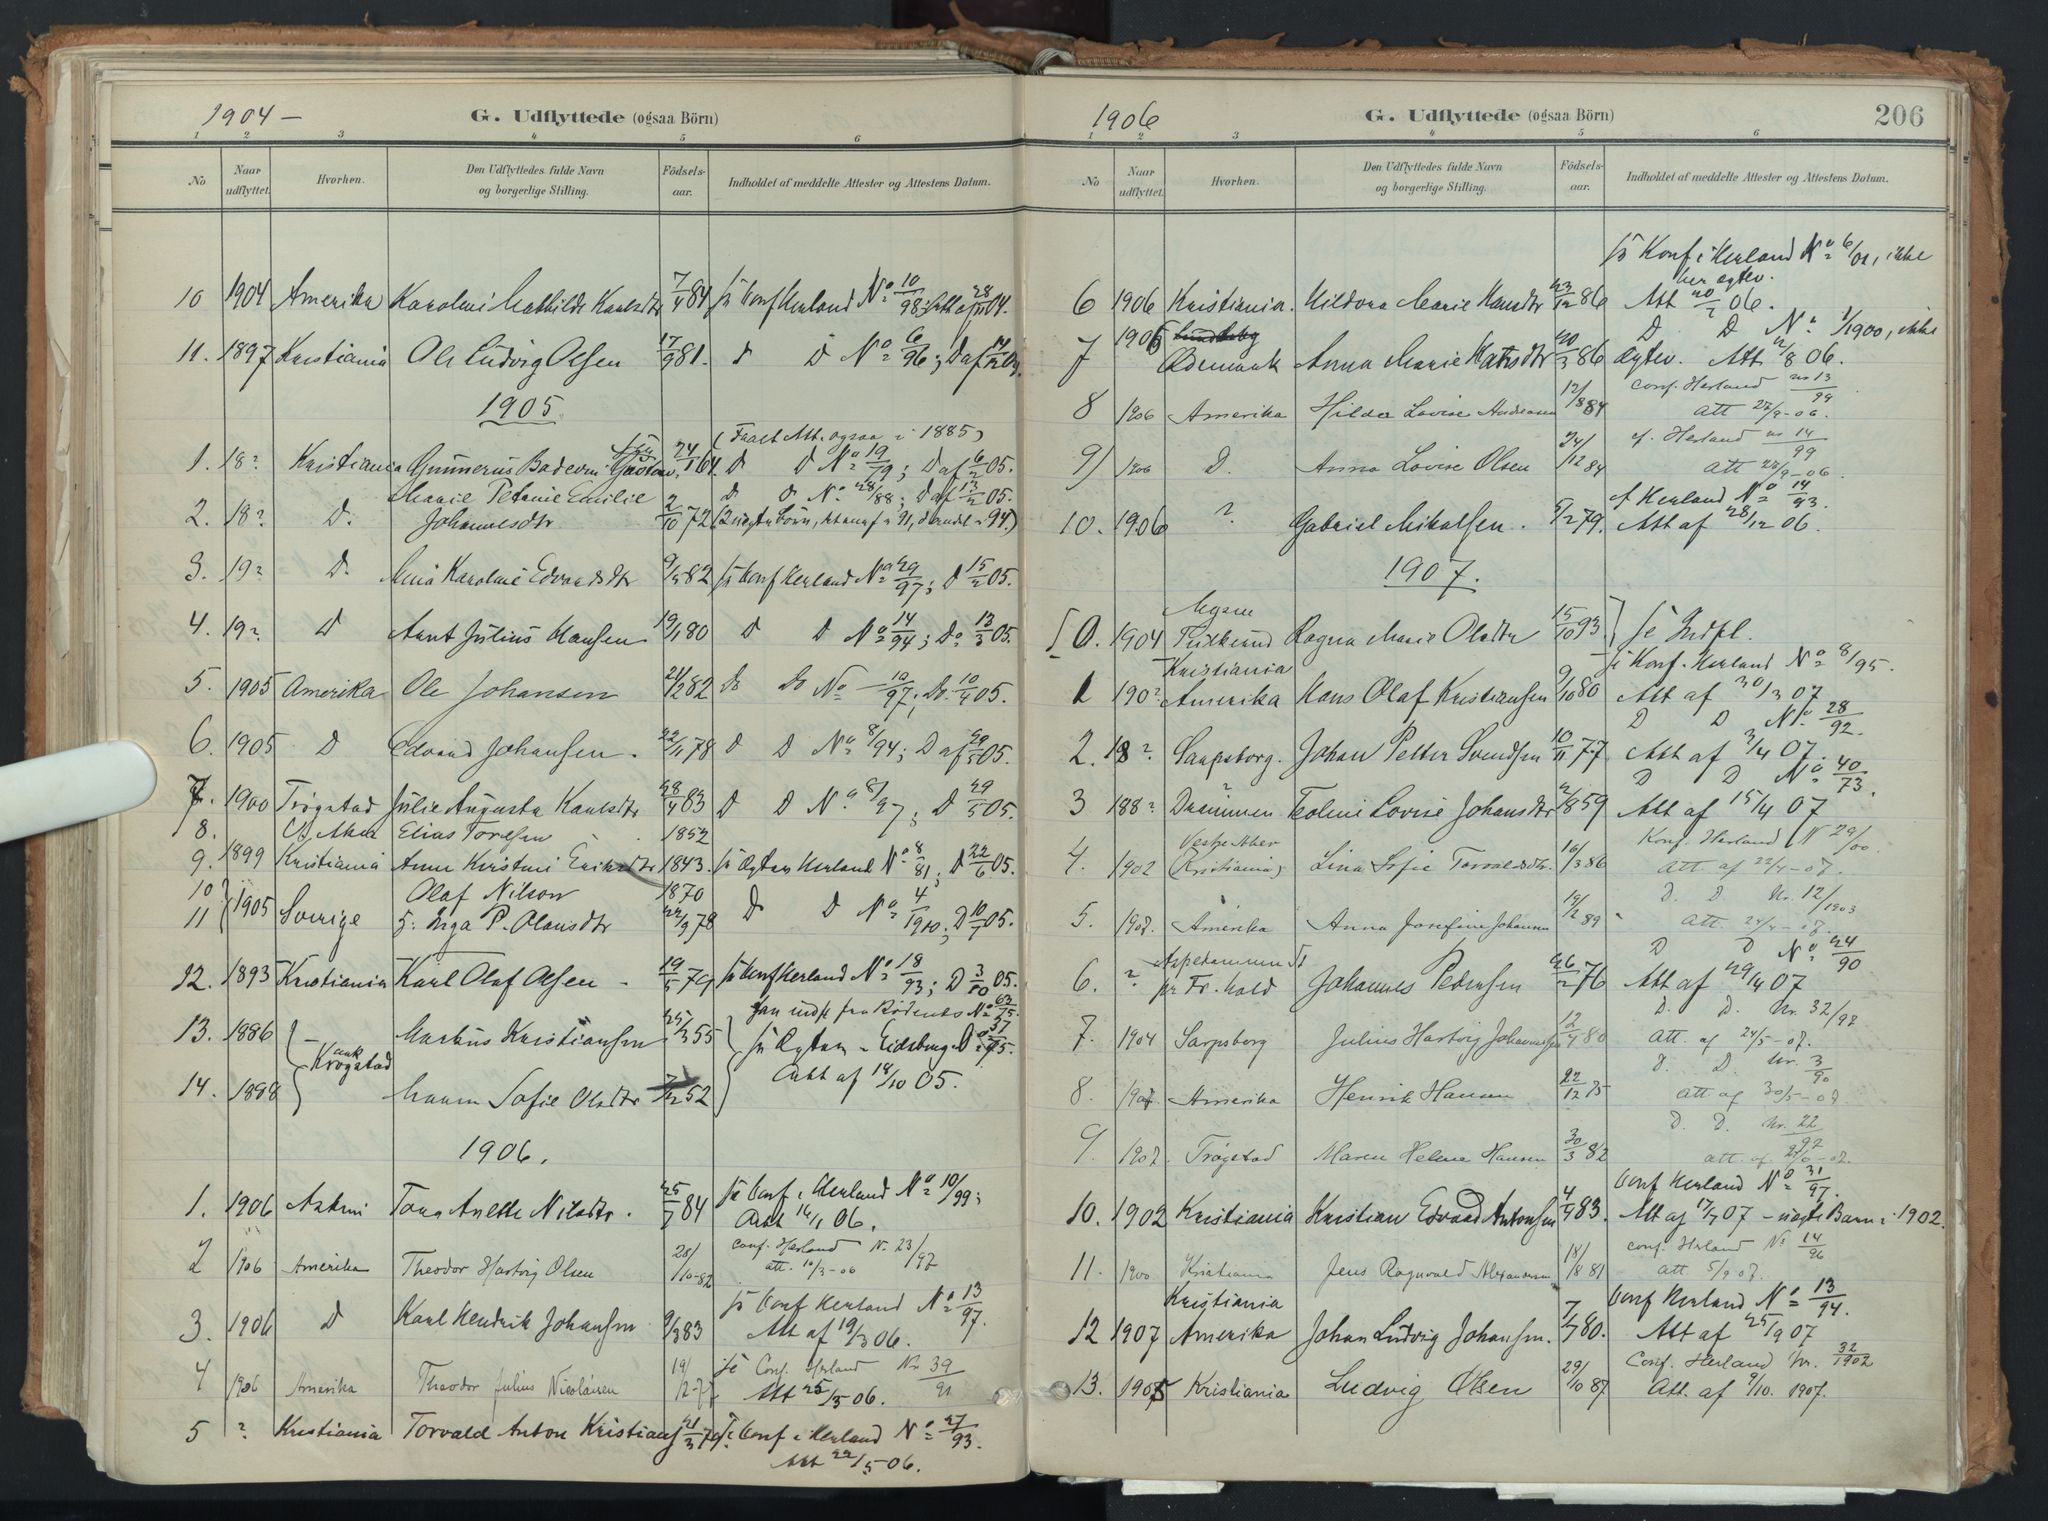 1904 —
G. Udflyttede (ogsaa Börn)
1 2 3 4 5 6
No
Naar udflyttet.
Hvorhen.
Den Udflyttedes fulde Navn og borgerlige Stilling.
Födsels-aar.
Indholdet af meddelte Attester og Attestens Datum.
10 1904 Amerika Karolini Mathilde Karlsdtr 7/4 84 Conf Herland No 10/98; Att af 04.
11. 1897 Kristiania Ole Ludvig Olsen 17/9 81. D D No 6/96; D af
1905
(Faaet Att. ogsaa i 1885)
1. 18? Kristiania Gunnerus 24/1 64. D D No 19/79; D af 6/2 05.
2. 18? D. Marie Petrine Emilie Johannesdtr 2/10 72 D D No 28/88; D af 13/2 05.
3. 19? D. Karoline Edvardsdtr 9/5 82 Conf Herland No 29/97; D 15/2 05.
4. 19? D Aant Julius Hansen 19/1 80 D D No 14/94; Do 13/3 05.
5. 1905 Amerika Ole Johansen 24/2 82 Do Do No 10/97; Do. 10/4 05.
6. 1905 D Edvard Johansen. 22/11 78 D D No 8/94; D af 05.
7. 1900 Trøgstad Julie Augusta Karlsdtr 28/4 83 D D No 8/97; D 29/5 05.
8. Elias 1852
9. 1899 Kristiania Anne Kristine 1843. Herland No 8/81; D 22/6 05.
10 1905 Sverige Olaf Nilsen 1870
11 Inga P. Olausdtr 22/9 78 D D No 4/1900; D 10/7 05.
12. 1893 Kristiania Karl Olaf Olsen - 19/5 79 Conf Herland No 18/93; D 3/10 05.
13. 1886 Markus Kristiansen 25/3 55
Krogstad
14. 1898 Maren Sofie Olsdtr 7/12 52 Att af 18/10 05.
1906.
1. 1906 Askim Tora Anette Nilsdtr. 25/7 84 Conf i Herland No 10/99; Att 16/1 06.
2 1906 Amerika Theodor Hartvig Olsen 28/10-82 Conf. Herland No 23/97 att. 10/3-06
3. 1906 D Karl Hendrik Johansen 9/3 83 Conf Herland No 13/97. Att af 19/3 06.
4 1906 Amerika Theodor Julius Nicolaisen 19/12-7 Conf. Herland Nr 39/91 Att 25/5 06.
5 ? Kristiania Torvald Anton Kristians 21/3 79 Conf i Herland No 27/93. Att 22/5 06.
1906
G. Udflyttede (ogsaa Börn)
206
1 2 3 4 5 6
No
Naar udflyttet.
Hvorhen.
Den Udflyttedes fulde Navn og borgerlige Stilling.
Födsels-aar.
Indholdet af meddelte Attester og Attestens Datum.
Konf i Herland No 6/01, ikke
6 1906 Kristiania. Hildora Marie Hansdtr 23/12 86 Att 20/7 06.
D D No 1/1900, ikke
7 1906 Ødemark Anna Marie 20/3 86 Att. 2/8 06.
8 1906 Amerika Hilda Lovise 12/8 84 Conf. Herland nr 13/99 att 22/9-06.
9) 1906 D. Anna Lovise Olsen 24/12 84 Herland nr 14/99 att 22/9-06
10. 1906 ? Gabriel Mikalsen. 5/2 79. Herland No 14/93. Att af 28/12 06.
1907.
0. 1904 Mysen Ragna Marie Olsdtr 15/10 93 Indfl.
1 190? Kristiania Amerika Hans Olaf Kristiansen 9/10 80 Konf. Herland No 8/95. Att af 30/3 07
2. 18? Sarpsborg. Johan Petter Svendsen 10/11 77 D D No 28/92. Att af 3/4 07.
3 188? Drammen Teoline Lovise Johansdtr 2/8 59 D D No 40/73. Att af 15/4 07
4. 1902 Vestre Aker (Kristiania) Lina Sofie Torvaldsdtr. 16/3 86 Konf. Herland N 29/00. att. af 22/4-07.
5. 1907. Amerika Anna Josefine Johansen 19/2 89 D. D. Nr. 12/1903 att. 24/4-07.
6. ? Fr.hald Johannes Pedersen 26/2 76 D D No 24/90 Att af 29/4 07
7. 1904 Sarpsborg Julius Hartvig Johannesen 12/4 80 D. D. Nr. 32/97 att. af 24/5-07.
8. 1907. Amerika Henrik Hansen 22/12 75 D. D. Nr. 3/90 att. af 30/5-07
9. 1907. Trøgstad Maren Helene Hansen 30/3 82 D. D. Nr. 22/97 att. af
10. 1902 Kristiania Kristian Edvard Antonsen 4/9 83. Conf Herland No 31/97. Att af 17/7 07 - uægte Barn i 1902.
11. 1900 Kristiania Jens Ragnvald Alexandersen 18/8 81 Conf. Herland No 14/96 att. 5/9 07.
12 1907 Kristiania Amerika Johan Ludvig Johansen. 7/7 80. Conf Herland No 13/94. Att af 25/9 07
13. 1905 Kristiania Ludvig Olsen 29/10 87 Conf. Herland Nr. 32/1902 Att. af 9/10. 1907.